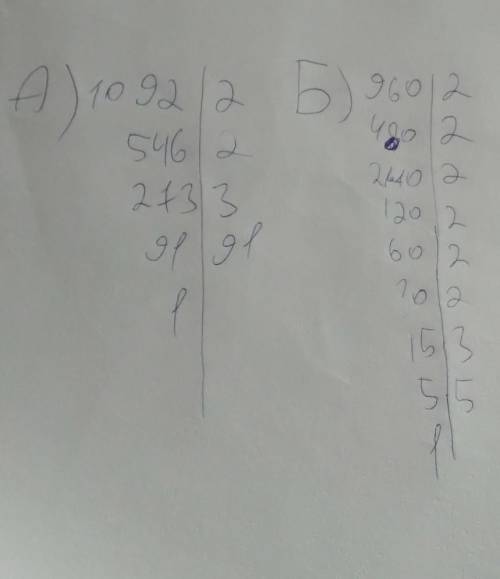 А) 1092 | 2
546 | 2
273 | 3
91 | 91
1
Б) 960 | 2
480 | 2
240 | 2
120 | 2
60 | 2
30 | 2
15 | 3
5 | 5
1